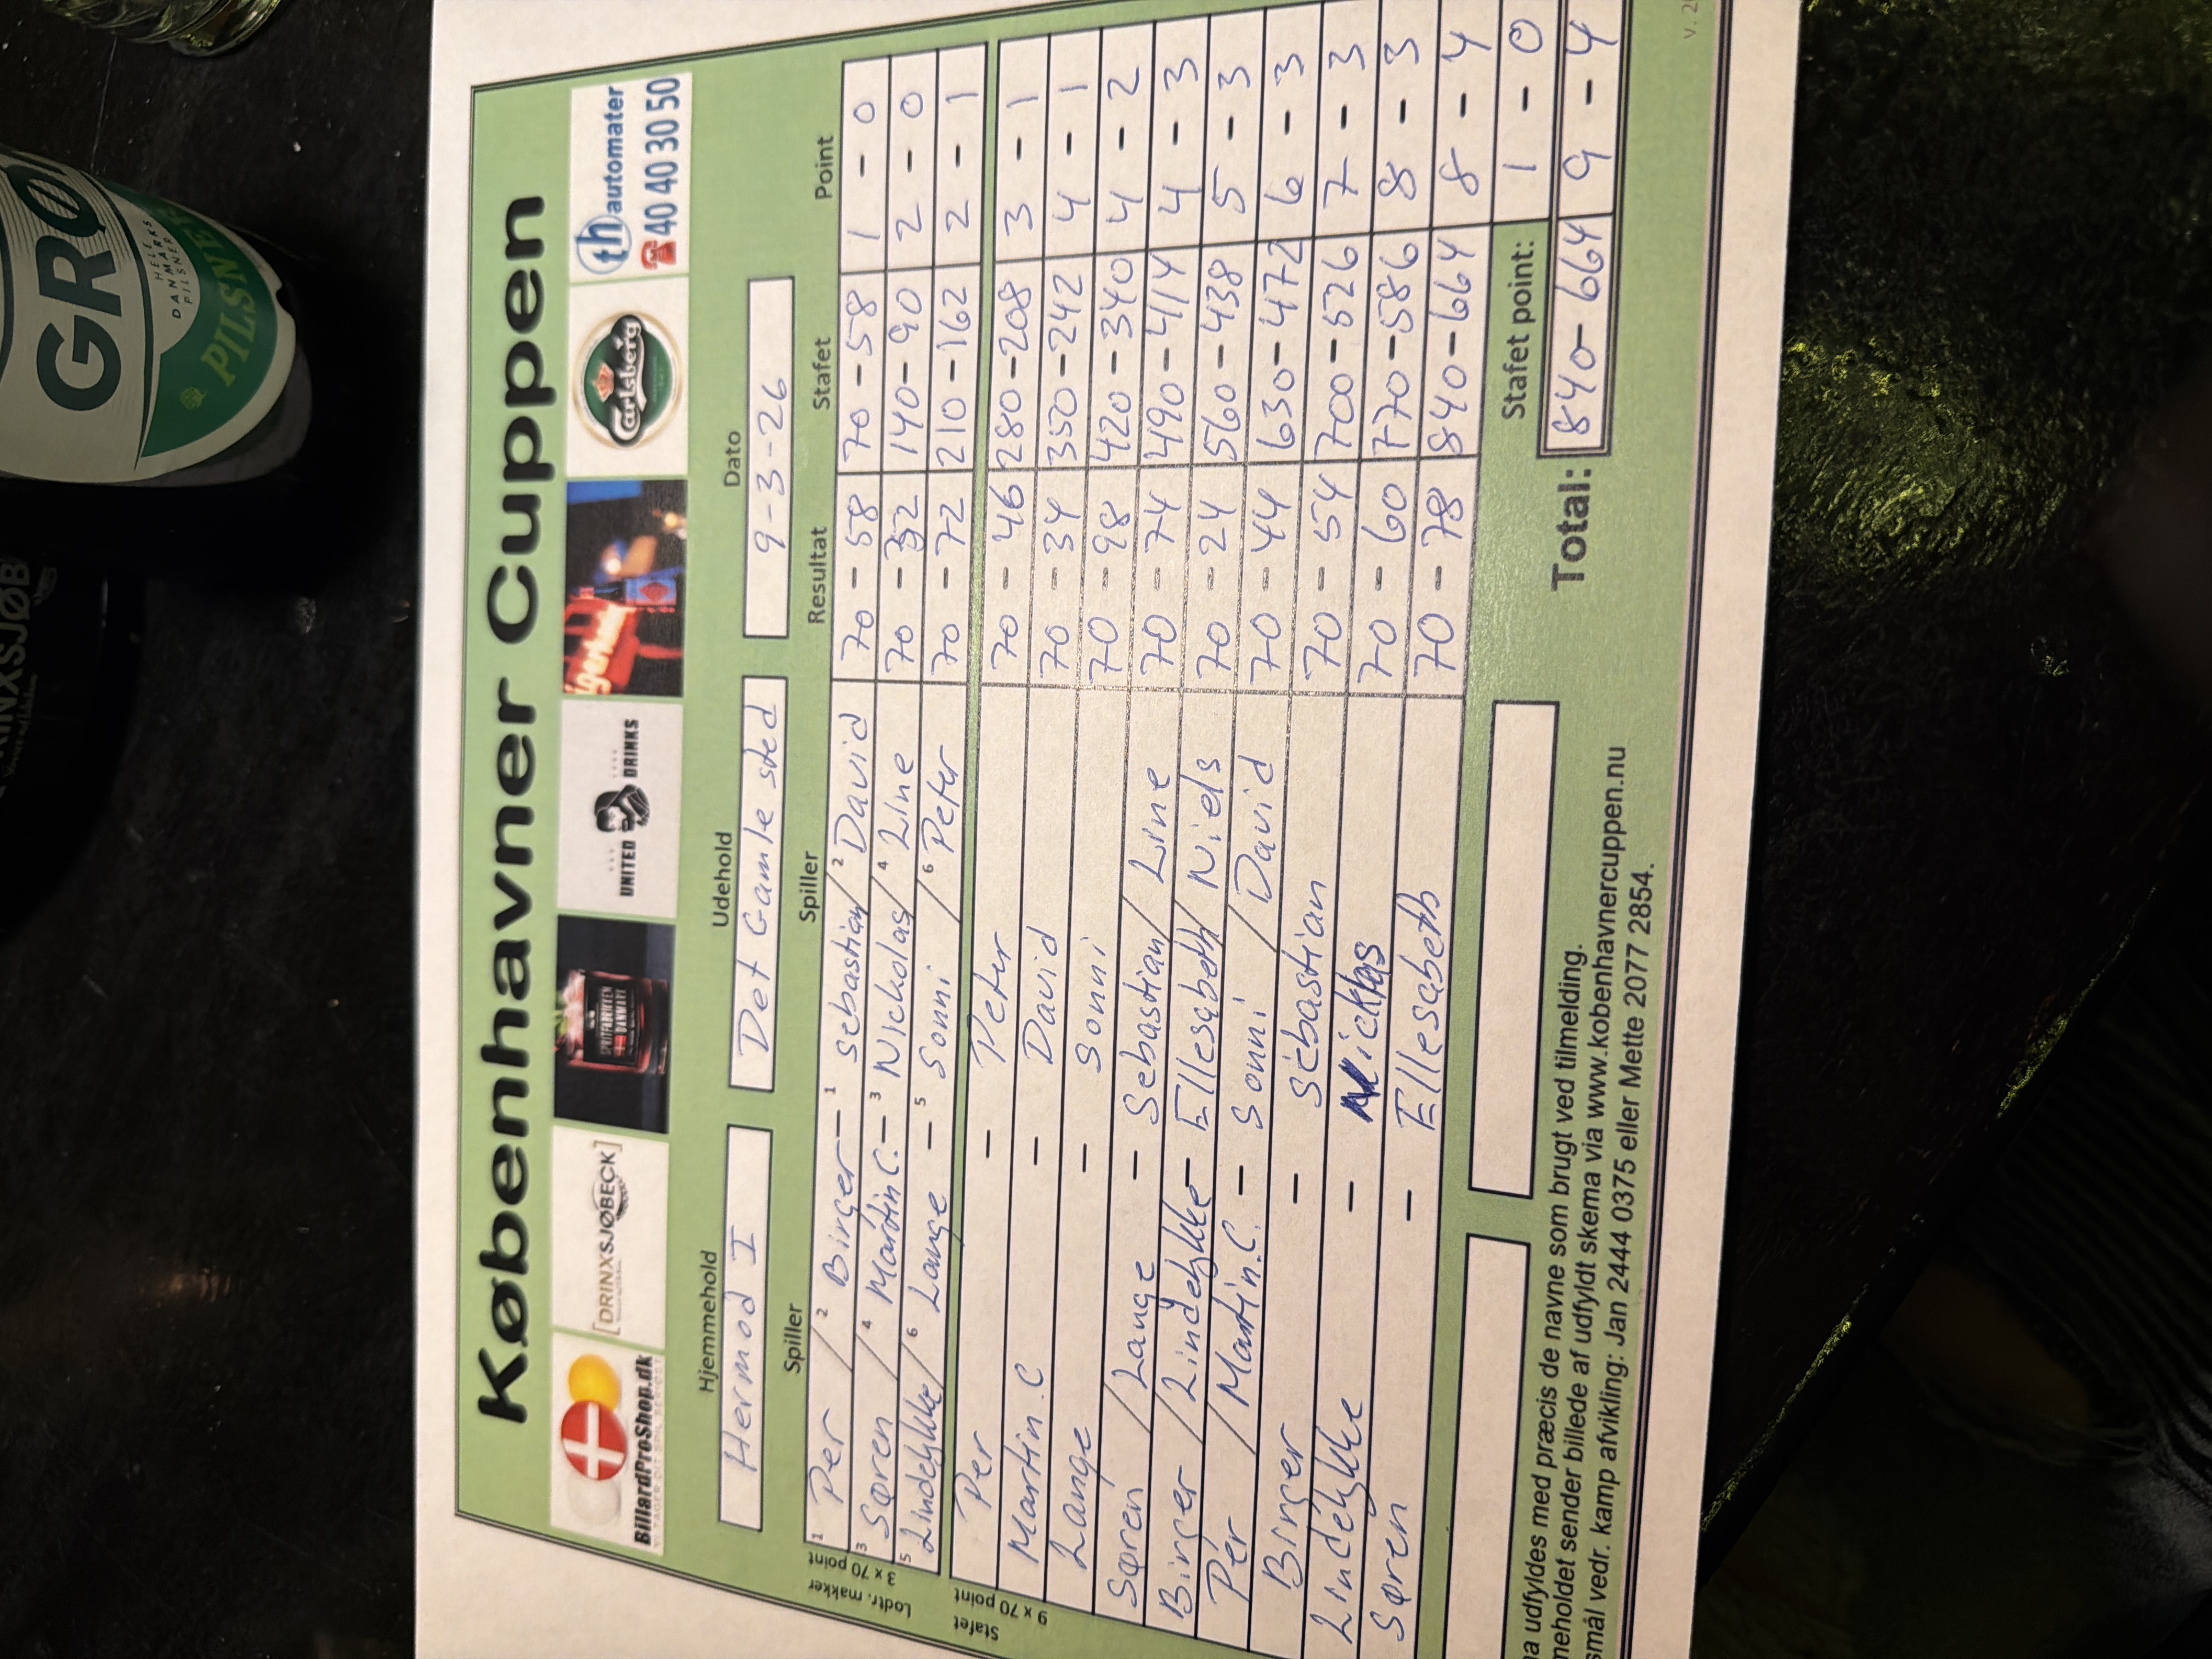 Københavner Cuppen
BilliardProShop.dk
[DRINXSJØBECK]
SPRITFABRIKKEN DANMARK
UNITED DRINKS
Carlsberg
th automater
40 40 30 50
Hjemmehold Udehold Dato
Hermod I Det Gamle sted 9-3-26
Spiller Spiller Resultat Stafet Point
Lodtr. makker
3 x 70 point
1 Per / 2 Birger - 1 Sebastian / 2 David 70 - 58 70 - 58 1 - 0
3 Søren / 4 Martin C. - 3 Nickolas / 4 Line 70 - 32 140 - 90 2 - 0
5 Lindelykke / 6 Lange - 5 Sonni / 6 Peter 70 - 72 210 - 162 2 - 1
Stafet
9 x 70 point
Per - Peter 70 - 46 280 - 208 3 - 1
Martin.C - David 70 - 34 350 - 242 4 - 1
Lange - Sonni 70 - 98 420 - 340 4 - 2
Søren / Lange - Sebastian / Line 70 - 74 490 - 414 4 - 3
Birger / Lindelykke - Ellesabeth / Niels 70 - 24 560 - 438 5 - 3
Per / Martin.C. - Sonni / David 70 - 44 630 - 472 6 - 3
Birger - Sebastian 70 - 54 700 - 526 7 - 3
Lindelykke - Nicklas 70 - 60 770 - 586 8 - 3
Søren - Ellesabeth 70 - 78 840 - 664 8 - 4
Stafet point: 1 - 0
Total: 840 - 664 9 - 4
udfyldes med præcis de navne som brugt ved tilmelding.
sender billede af udfyldt skema via www.kobenhavnercuppen.nu
vedr. kamp afvikling: Jan 2444 0375 eller Mette 2077 2854.
GRØ
HELE DANMARKS PILSNER
PILSNER